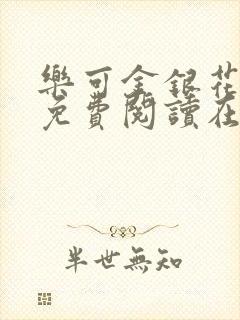 樂可金銀花
免費閱讀在
半世無知